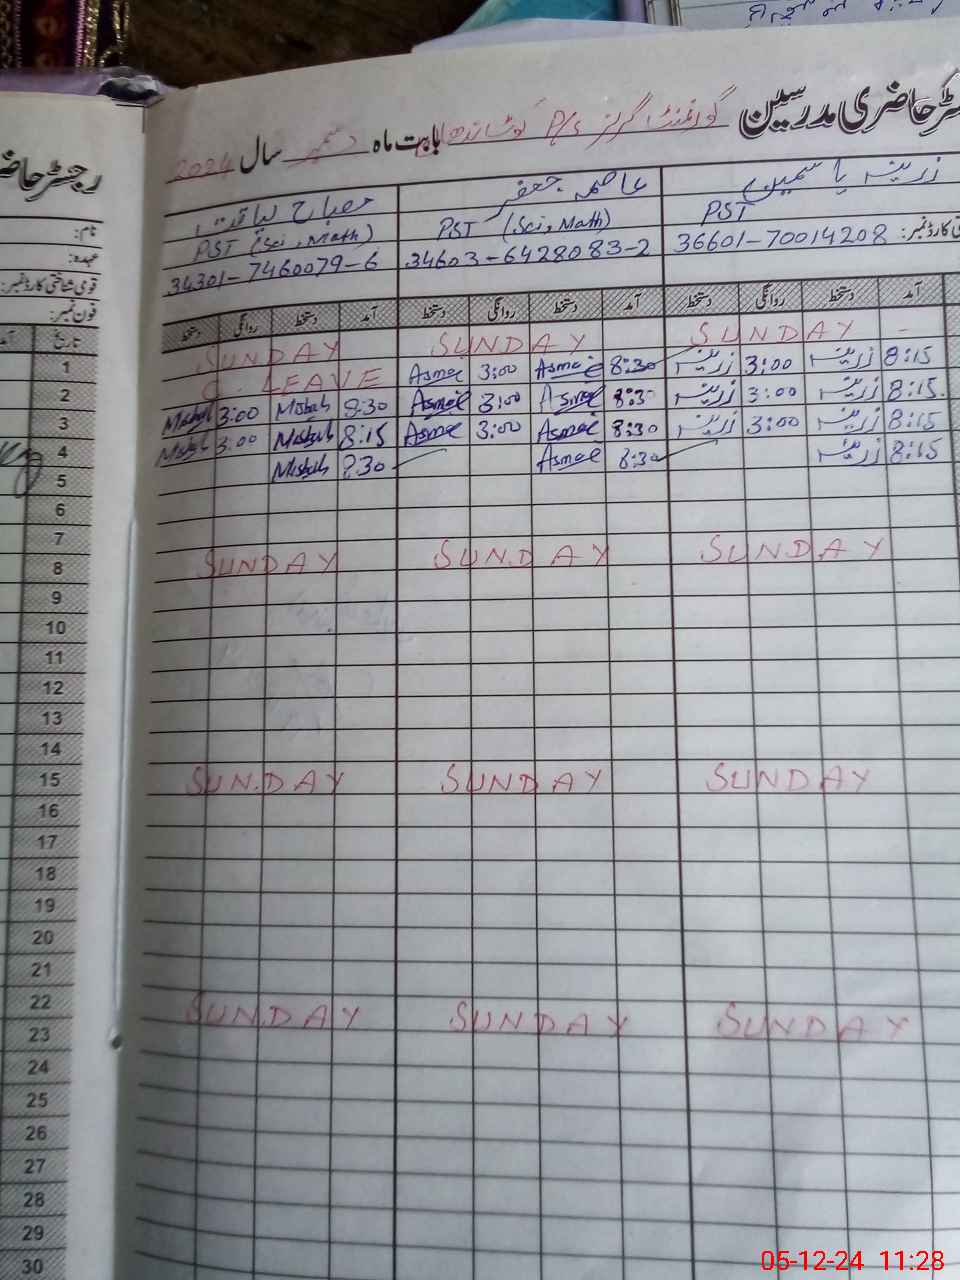 رجسٹر حاضری مدرسین گورنمنٹ گرلز P/s بابت ماہ دسمبر سال 2024
زرینہ یاسمین عاصمہ جعفر مصباح لیاقت
PST PST (Sci, Math) PST (Sci, Math)
36601-70014208 34603-6428083-2 34301-7460079-6
آمد دستخط روانگی دستخط آمد دستخط روانگی دستخط آمد دستخط روانگی دستخط
SUNDAY SUNDAY SUNDAY -
C. LEAVE Asma 3:00 Asma 8:30 زرینہ 3:00 زرینہ 8:15
Misbah 3:00 Misbah 8:30 Asma 3:00 Asma 8:30 زرینہ 3:00 زرینہ 8:15
Misbah 3:00 Misbah 8:15 Asma 3:00 Asma 8:30 زرینہ 3:00 زرینہ 8:15
Misbah 8:30 Asma 8:30 زرینہ 8:15
SUNDAY SUNDAY SUNDAY
SUNDAY SUNDAY SUNDAY
SUNDAY SUNDAY SUNDAY
رجسٹر حاضر
نام:
عہدہ:
قومی شناختی کارڈ نمبر:
فون نمبر:
تاریخ
1
2
3
4
5
6
7
8
9
10
11
12
13
14
15
16
17
18
19
20
21
22
23
24
25
26
27
28
29
30
05-12-24 11:28